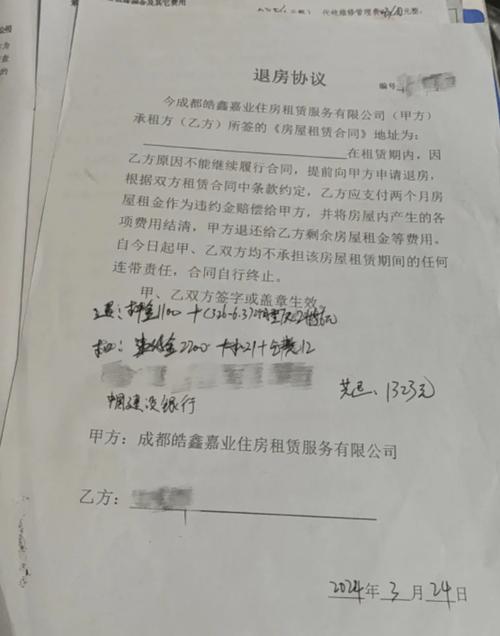 设备及其它费用
代收维修管理费 元整。
退房协议
编号
今成都皓鑫嘉业住房租赁服务有限公司(甲方)
承租方(乙方)所签的《房屋租赁合同》地址为:
在租赁期内,因
乙方原因不能继续履行合同,提前向甲方申请退房,
根据双方租赁合同中条款约定,乙方应支付两个月房
屋租金作为违约金赔偿给甲方,并将房屋内产生的各
项费用结清,甲方退还给乙方剩余房屋租金等费用。
自今日起甲、乙双方均不承担该房屋租赁期间的任何
连带责任,合同自行终止。
甲、乙双方签字或盖章生效。
退:押金1100+(3.26-6.3)
扣: 金2200 +水21+ 12
共退:1323元
中国建设银行
甲方:成都皓鑫嘉业住房租赁服务有限公司
乙方:
2024年3月24日